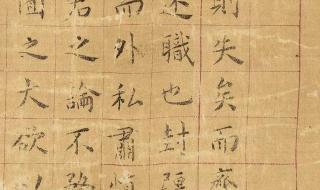 則失矣而齊
述職也封疆
而外私肅慎
君之論不務
國之大欲以